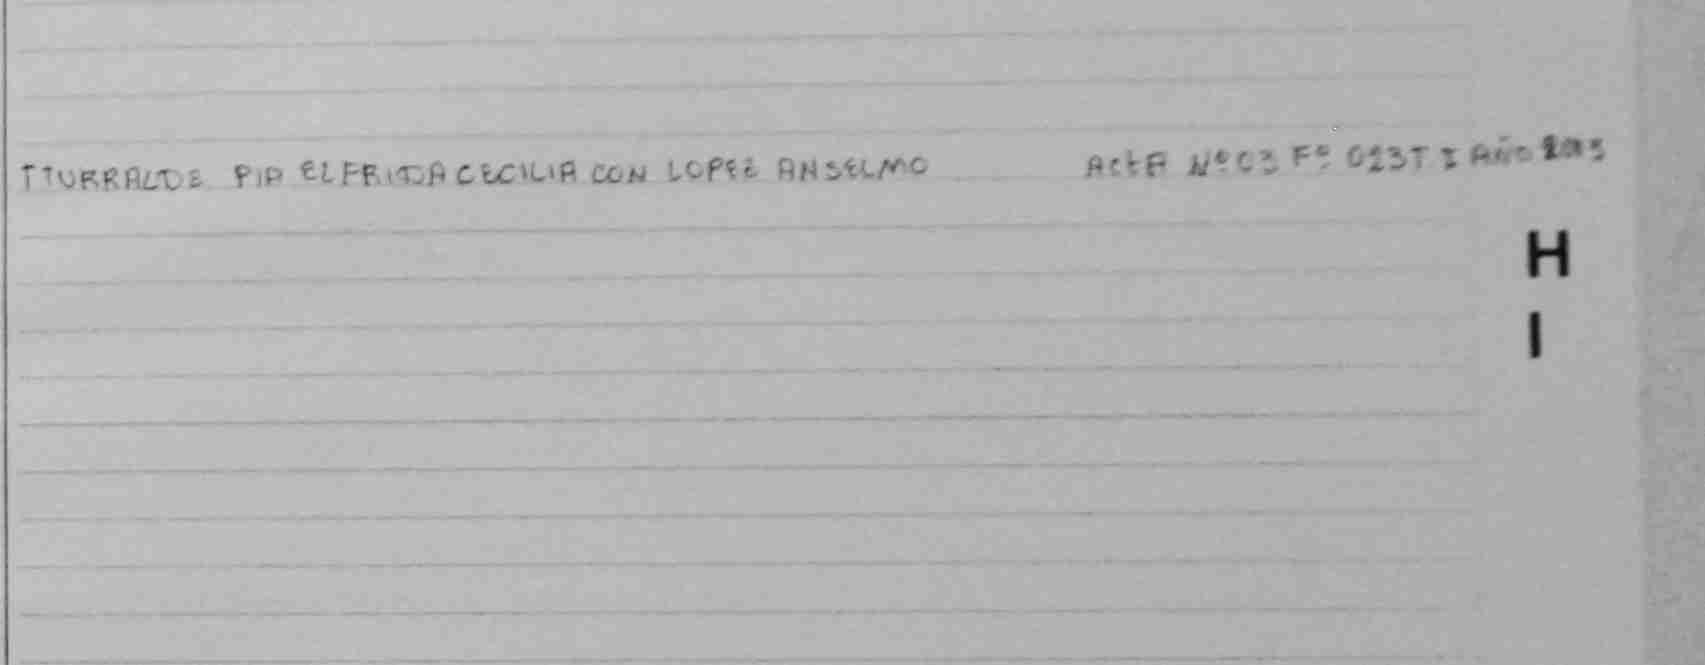 ITURRALDE PIA ELFRIDA CECILIA CON LOPEZ ANSELMO ActA Nº 03 Fº 023 T I AÑO
H
I